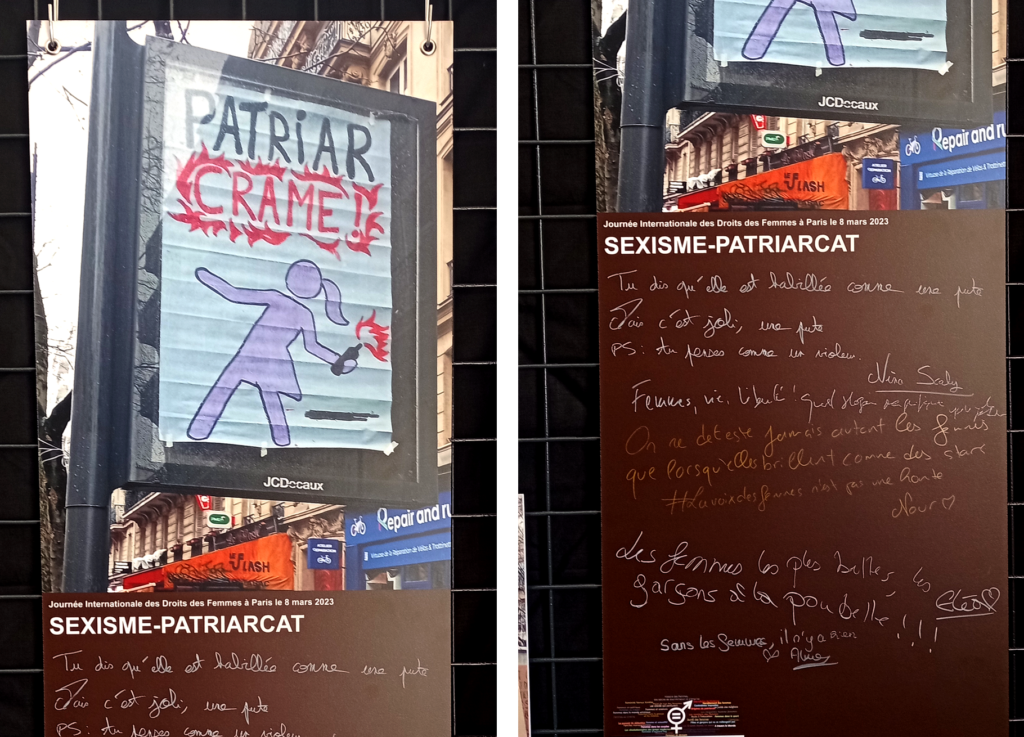 PATRIAR
CRAME !
JCDecaux
Repair and ru
Virtuose de la Réparation de Vélos & Trottinett
ATELIER
RÉPARATION
LE FLASH
Journée Internationale des Droits des Femmes à Paris le 8 mars 2023
SEXISME-PATRIARCAT
Tu dis qu'elle est habillée comme une pute
Mais c'est joli, une pute
PS: tu penses comme un violeur.
JCDecaux
Repair and ru
Virtuose de la Réparation de Vélos & Trottinett
ATELIER
RÉPARATION
LE FLASH
Journée Internationale des Droits des Femmes à Paris le 8 mars 2023
SEXISME-PATRIARCAT
Tu dis qu'elle est habillée comme une pute
Mais c'est joli, une pute
PS: tu penses comme un violeur.
Nino
Femmes, vie, liberté ! quel slogan magnifique
On ne déteste jamais autant les femmes
que lorsqu'elles brillent comme des stars
#Lavoixdesfemmes n'est pas une honte
Nour
Les femmes les plus belles, les
garçons à la poubelle !!!
Cléo
Sans les femmes, il n'y a rien